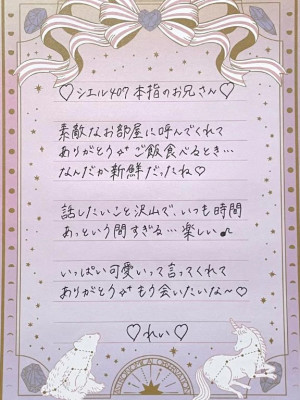 ♡シエル407 本指のお兄さん♡
素敵なお部屋に呼んでくれて
ありがとう✨ ご飯食べるとき…
なんだか新鮮だったね♡
話したいこと沢山で、いつも時間
あっという間すぎる… 楽しい♪
いっぱい可愛いって言ってくれて
ありがとう✨ もう会いたいな〜♡
♡れい♡